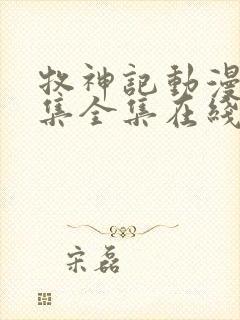 牧神記動漫
集全集在綫
宋磊